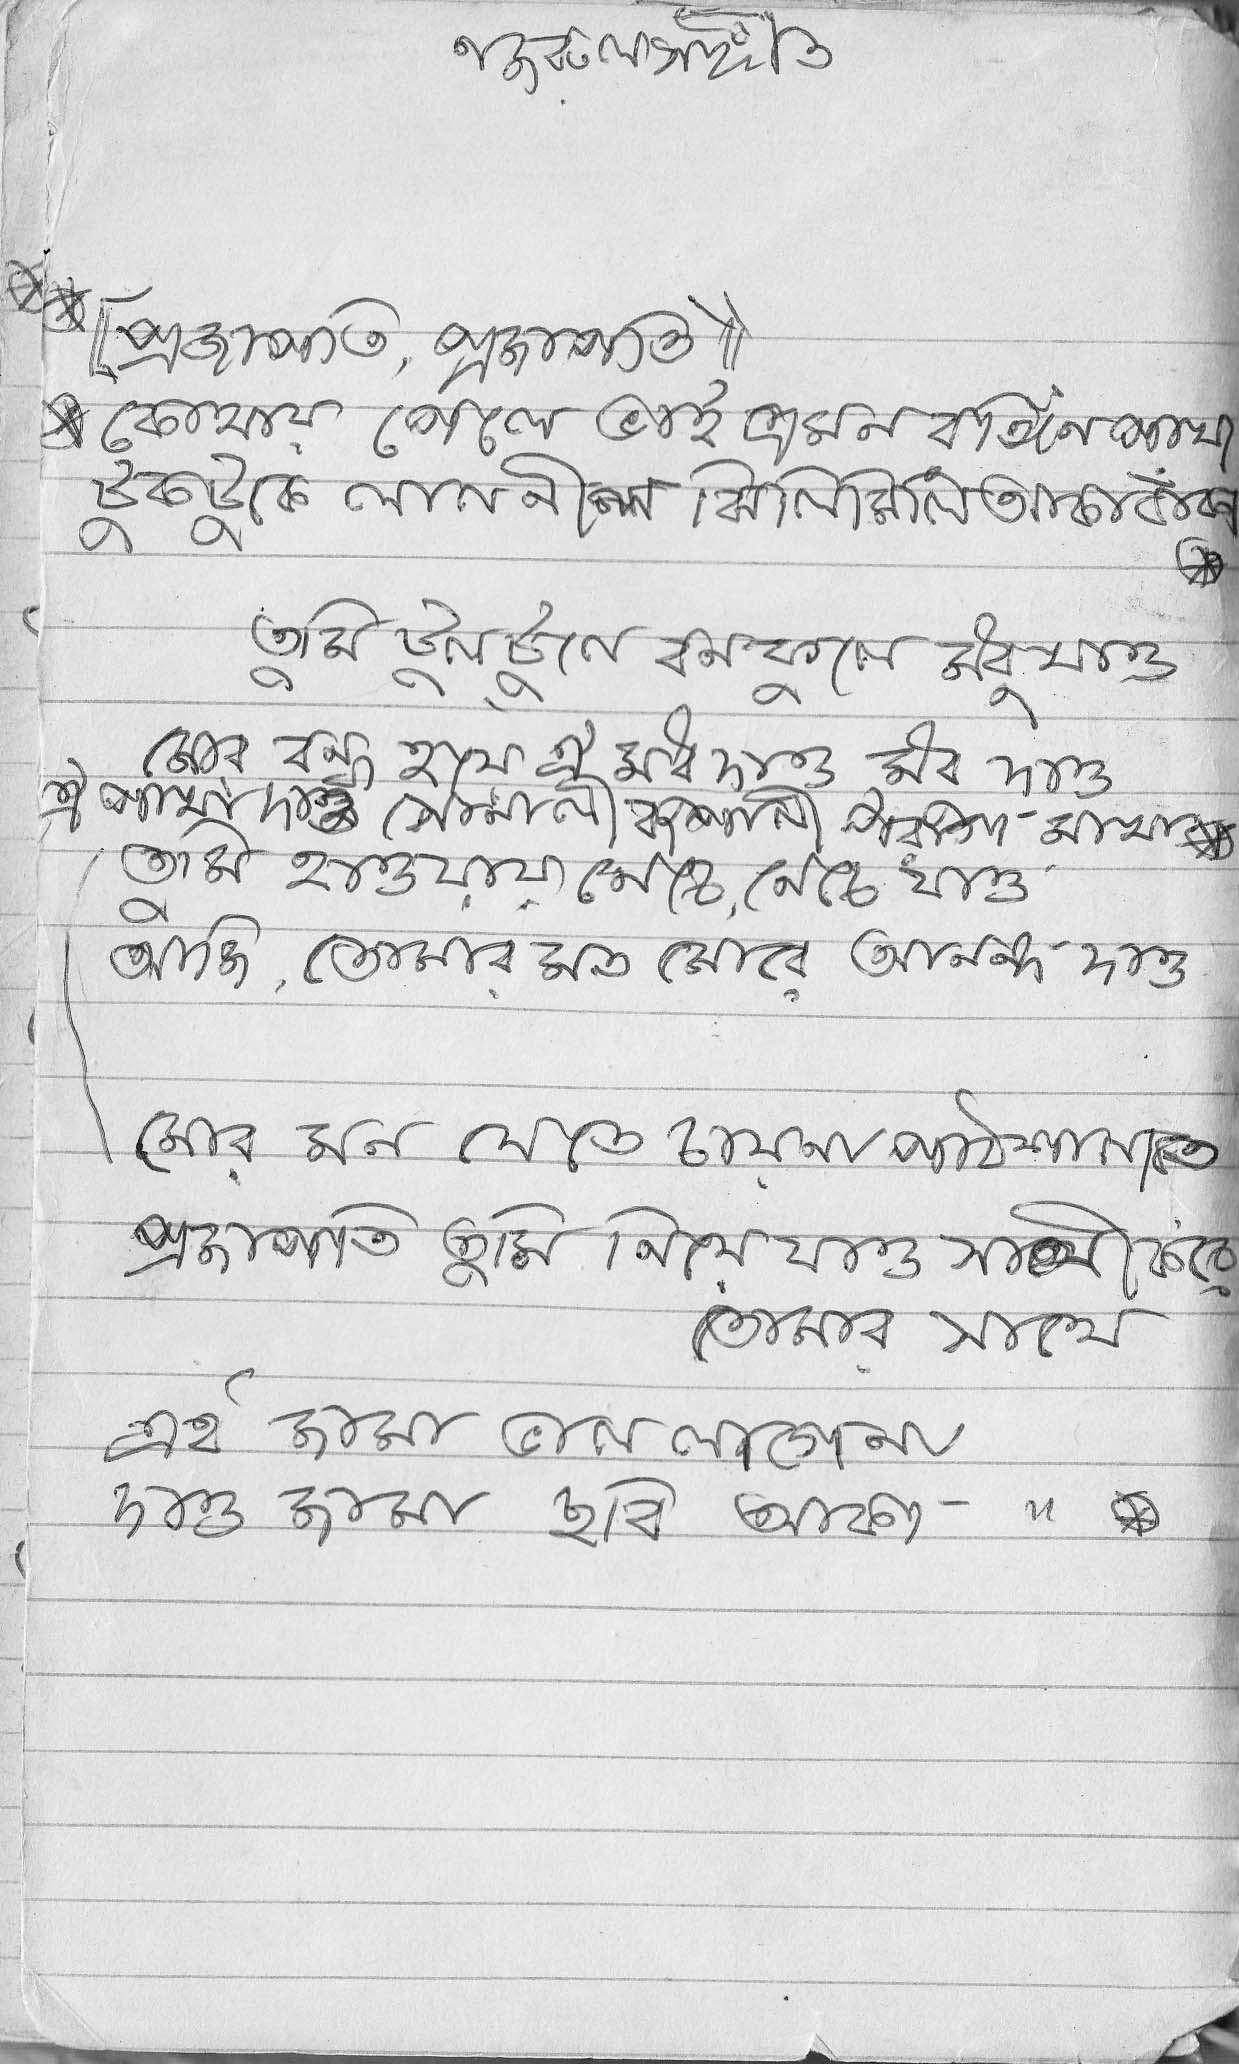 নজরুল সঙ্গীতি
প্রজাপতি, প্রজাপতি॥
কোথায় পেলে ভাই এমন রঙিন পাখা
টুকটুকে লাল নীল ঝিলিমিলি আকাবাঁকা
তুমি টুলটুলে বনফুলে মধু খাও
মোর বন্ধু হয়ে ঐ মধু দাও মধু দাও
ঐ পাখা দাও সোনালী রূপালী পরাগ মাখা
তুমি হাওয়ায় নেচে, নেচে যাও
আজি, তোমার মত মোরে আনন্দ দাও
মোর মন যেতে চায়না পাঠশালাতে
প্রজাপতি তুমি নিয়ে যাও সাথী করে
তোমার সাথে
এই জামা ভাল লাগেনা
দাও জামা ছবি আকা - "